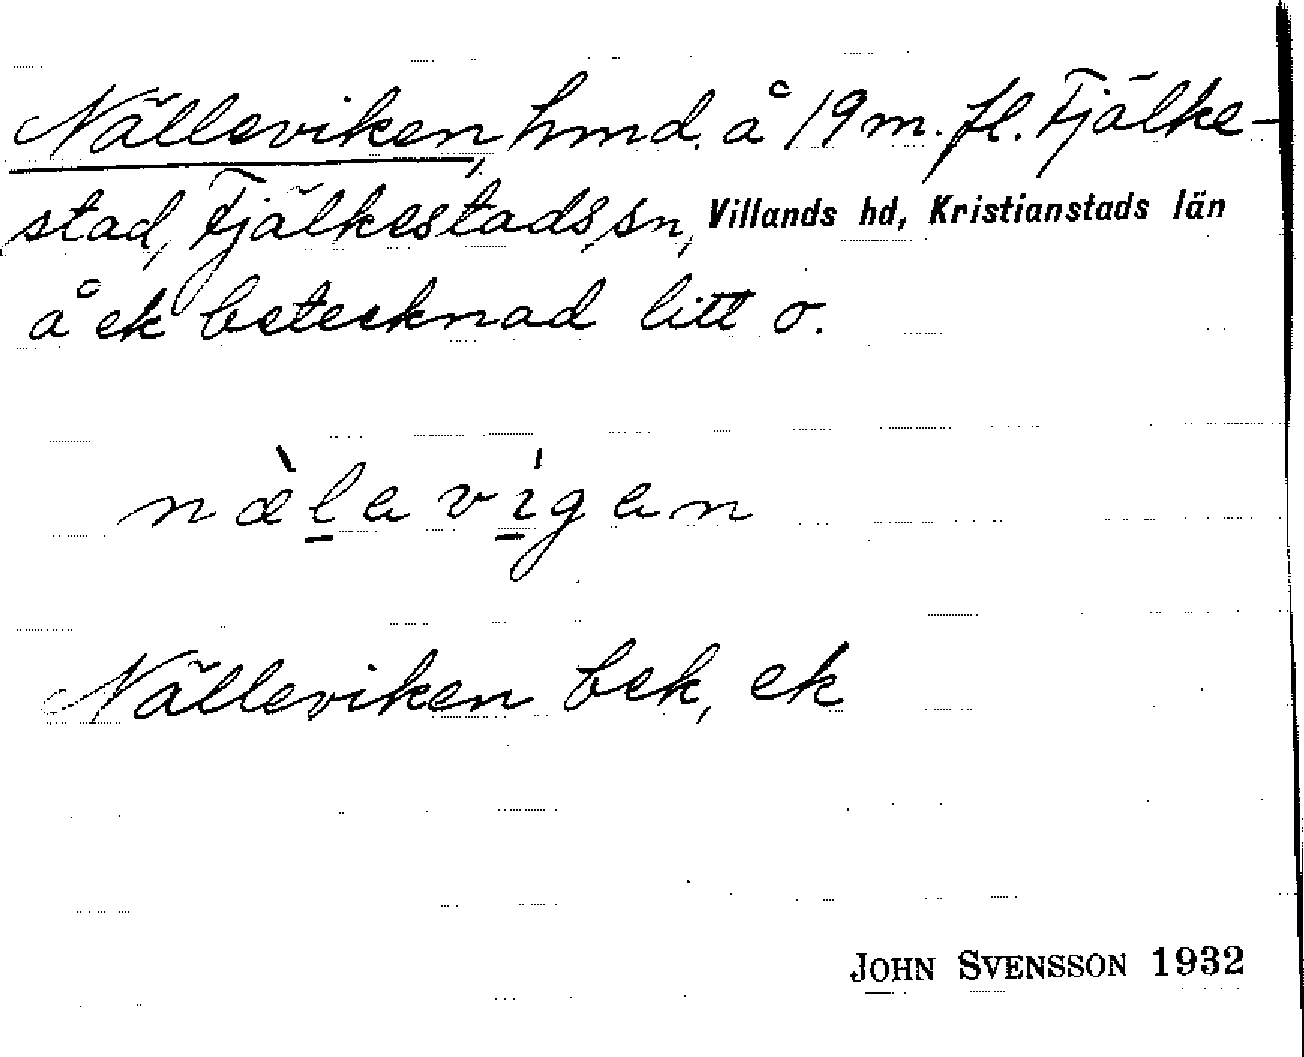 Nälleviken, hmd. å 19 m. fl. Fjälke-
stad, Fjälkestads sn, Villands hd, Kristianstads län
å ek betecknad litt o.
næ̀lavígan
Nälleviken bek, ek
JOHN SVENSSON 1932